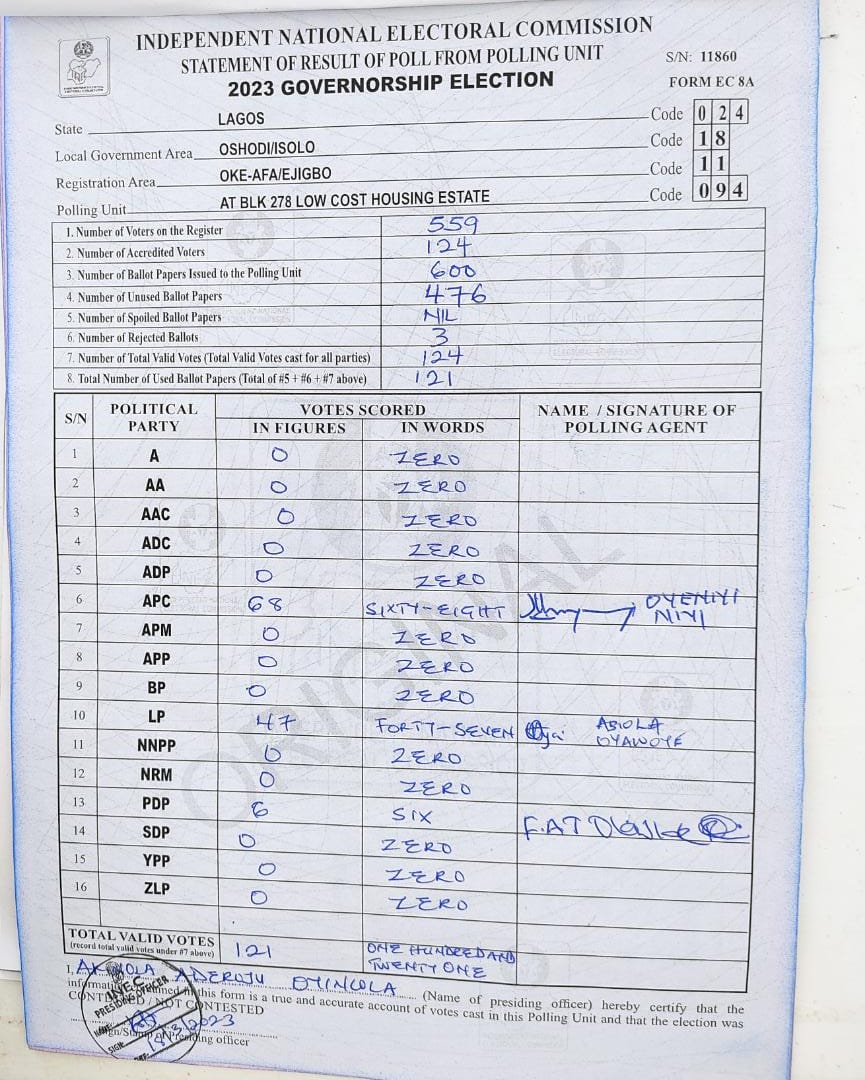 INDEPENDENT NATIONAL ELECTORAL COMMISSION
STATEMENT OF RESULT OF POLL FROM POLLING UNIT
S/N: 11860
2023 GOVERNORSHIP ELECTION
FORM EC 8A
State LAGOS Code 0 2 4
Local Government Area OSHODI/ISOLO Code 1 8
Registration Area OKE-AFA/EJIGBO Code 1 1
Polling Unit AT BLK 278 LOW COST HOUSING ESTATE Code 0 9 4
1. Number of Voters on the Register 559
2. Number of Accredited Voters 124
3. Number of Ballot Papers Issued to the Polling Unit 600
4. Number of Unused Ballot Papers 476
5. Number of Spoiled Ballot Papers NIL
6. Number of Rejected Ballots 3
7. Number of Total Valid Votes (Total Valid Votes cast for all parties) 124
8. Total Number of Used Ballot Papers (Total of #5 + #6 + #7 above) 121
S/N POLITICAL PARTY VOTES SCORED IN FIGURES IN WORDS NAME / SIGNATURE OF POLLING AGENT
1 A 0 ZERO
2 AA 0 ZERO
3 AAC 0 ZERO
4 ADC 0 ZERO
5 ADP 0 ZERO
6 APC 68 SIXTY-EIGHT OYENIYI NIYI
7 APM 0 ZERO
8 APP 0 ZERO
9 BP 0 ZERO
10 LP 47 FORTY-SEVEN ABIOLA OYAWOYE
11 NNPP 0 ZERO
12 NRM 0 ZERO
13 PDP 6 SIX
14 SDP 0 ZERO
15 YPP 0 ZERO
16 ZLP 0 ZERO
ORIGINAL
TOTAL VALID VOTES
(record total valid votes under #7 above) 121 ONE HUNDRED AND TWENTY ONE
I, ADEROJU OYINLOLA (Name of presiding officer) hereby certify that the
information contained in this form is a true and accurate account of votes cast in this Polling Unit and that the election was
CONTESTED / NOT CONTESTED
Sign/Stamp of Presiding officer
INEC
PRESIDING OFFICER